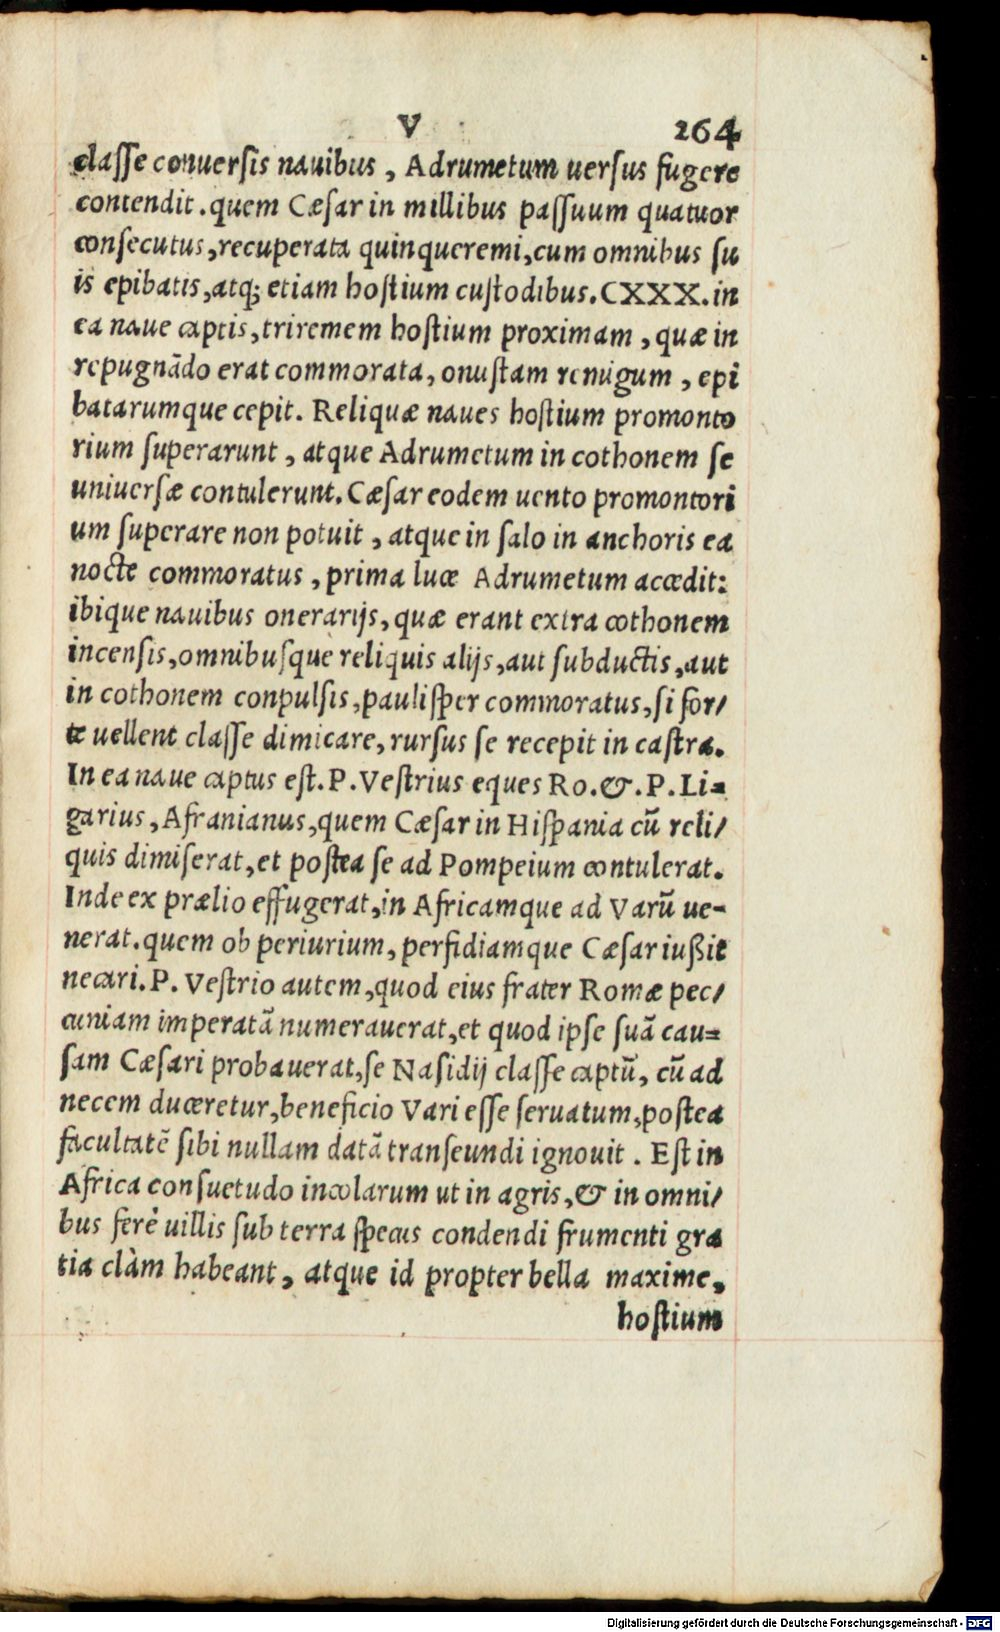 V 264
classe conuersis nauibus, Adrumetum uersus fugere
contendit. quem Cæsar in millibus passuum quatuor
consecutus, recuperata quinqueremi, cum omnibus su
is epibatis, atq; etiam hostium custodibus. CXXX. in
ea naue captis, triremem hostium proximam, quæ in
repugnãdo erat commorata, onustam remigum, epi
batarumque cepit. Reliquæ naues hostium promonto
rium superarunt, atque Adrumetum in cothonem se
uniuersæ contulerunt. Cæsar eodem uento promontori
um superare non potuit, atque in salo in anchoris ea
nocte commoratus, prima luce Adrumetum accedit:
ibique nauibus onerarijs, quæ erant extra cothonem
incensis, omnibusque reliquis alijs, aut subductis, aut
in cothonem conpulsis, paulisper commoratus, si for/
te uellent classe dimicare, rursus se recepit in castra.
In ea naue captus est. P. Vestrius eques Ro. &. P. Li=
garius, Afranianus, quem Cæsar in Hispania cũ reli/
quis dimiserat, et postea se ad Pompeium contulerat.
Inde ex prælio effugerat, in Africamque ad Varũ ue-
nerat. quem ob periurium, perfidiamque Cæsar iußit
necari. P. Vestrio autem, quod eius frater Romæ pec/
cuniam imperatã numerauerat, et quod ipse suã cau=
sam Cæsari probauerat, se Nasidij classe captũ, cũ ad
necem duceretur, beneficio Vari esse seruatum, postea
facultatẽ sibi nullam datã transeundi ignouit. Est in
Africa consuetudo incolarum ut in agris, & in omni/
bus ferè uillis sub terra specus condendi frumenti gra
tia clàm habeant, atque id propter bella maxime,
hostium
Digitalisierung gefördert durch die Deutsche Forschungsgemeinschaft - DFG